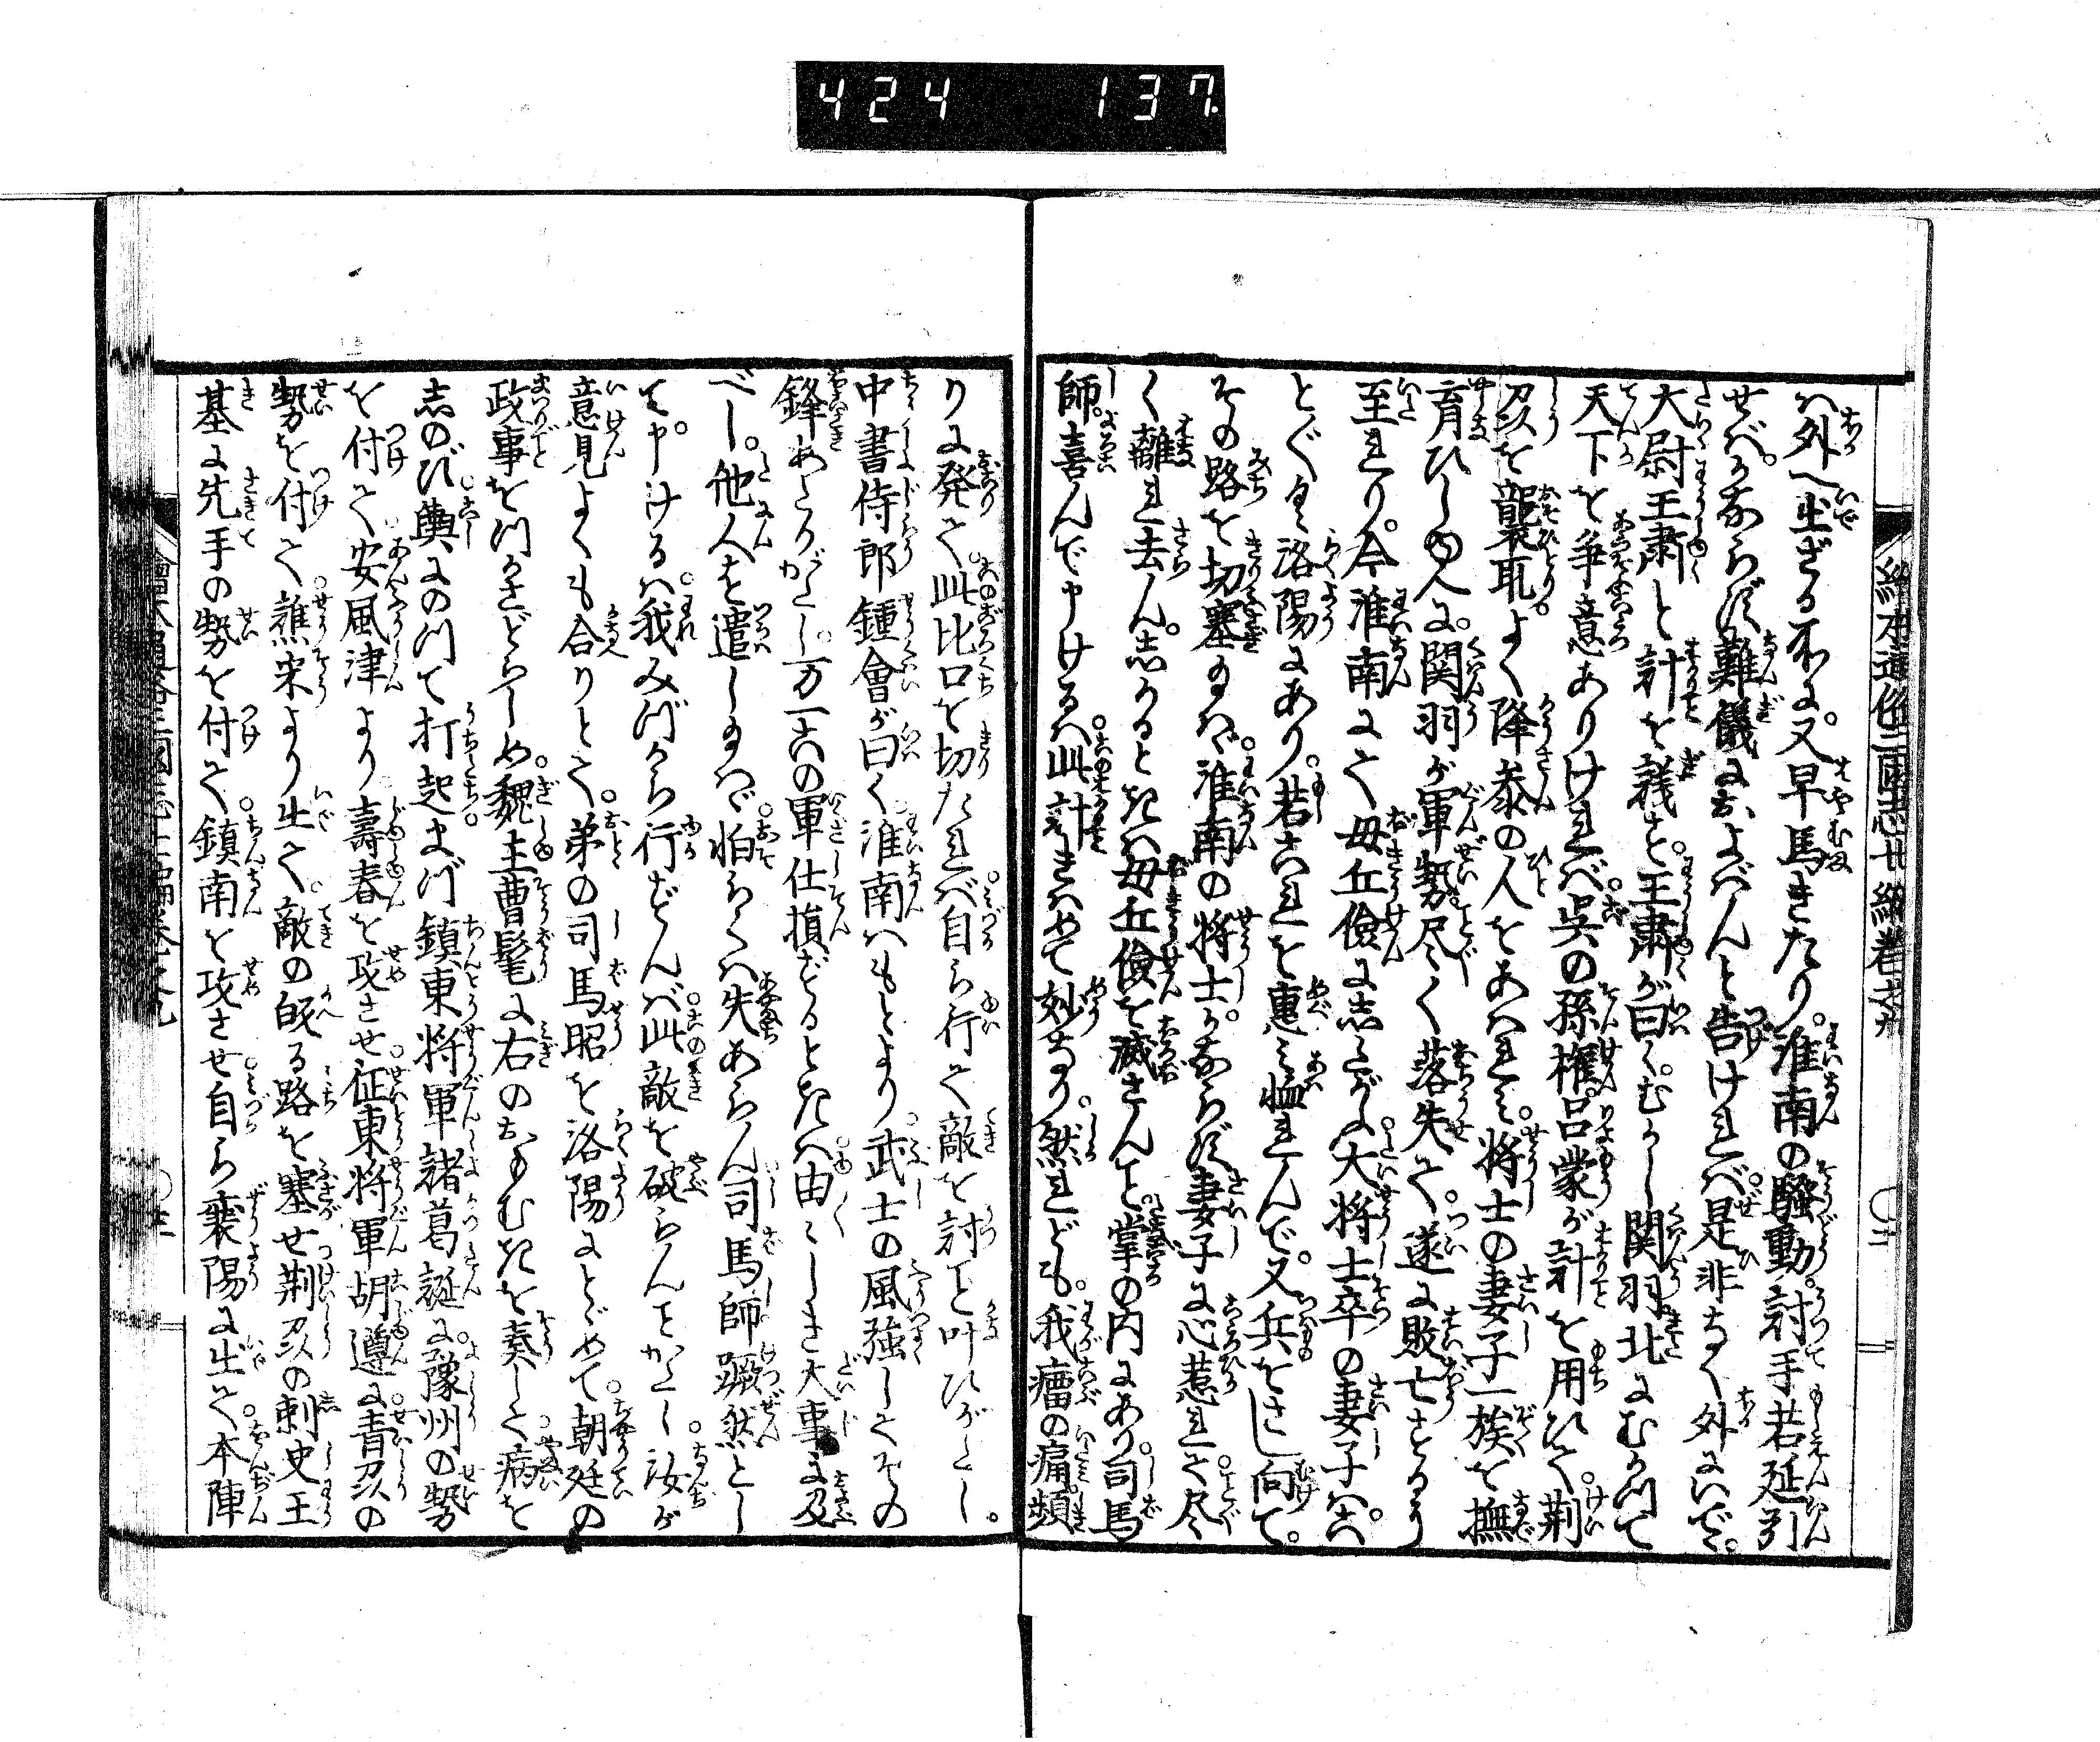 424 137
絵本通俗三国志七編巻之九
ハ外へ出ざる所に。又早馬きたり。淮南の騒動。討手若延引
せば。かならず難儀におよばんと告けれバ。是非なく外にいで。
大尉王粛と計を議す。王粛が曰く。むかし関羽北にむかつて
天下を争意ありけれバ。呉の孫権。呂蒙が計を用ひて。荆
州を襲取。よく降参の人をあハれミ。将士の妻子一族を撫
育ひしゆへに。関羽が軍勢。尽く落失て。遂に敗亡するに
至れり。今淮南にて毋丘儉にしたがふ大将士卒の妻子ハ。こ
とごとく洛陽にあり。若これを恵ミ恤れんで。又兵をさし向て。
その路を切塞るゝバ。淮南の将士。かならず妻子に心惹れて。尽
く離れ去ん。しかるときハ毋丘儉を滅さんこと。掌の内にあり。司馬
師。喜んで申けるハ。此計きハめて妙なり。然れども。我瘤の痛。頻
りに発て。此比口を切たれバ。自ら行て敵を討こと叶ひがたし。
中書侍郎鍾會が曰く。淮南ハもとより武士の風強してその
鋒あたりがたし。万一この軍仕損ずるときハ。由〻しき大事に及
べし。他人を遣し玉ハゞ。怕らくハ失あらん。司馬師。蹶然とし
て申けるハ。我みづから行ずんバ。此敵を破らんことかたし。汝が
意見よくも合りとて。弟の司馬昭を洛陽にとゞめて。朝廷の
政事をつかさどらしめ。魏主曹髦に右のおもむきを奏して。病を
しのび。輿にのつて打起。まづ鎮東将軍諸葛誕に。豫州の勢
を付て。安風津より壽春を攻させ。征東将軍胡遵に。青州の
勢を付て。譙宋より出て。敵の皈る路を塞せ。荆州の刺史王
基に先手の勢を付て。鎮南を攻させ。自ら襄陽に出て。本陣